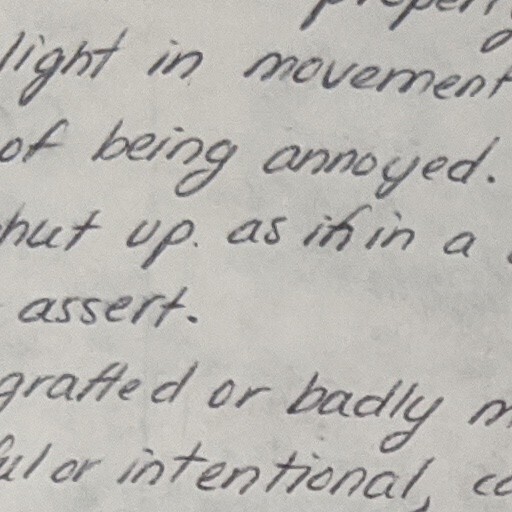 light in movement
of being annoyed.
hut up. as if in a
assert.
grafted or badly
ul or intentional, co